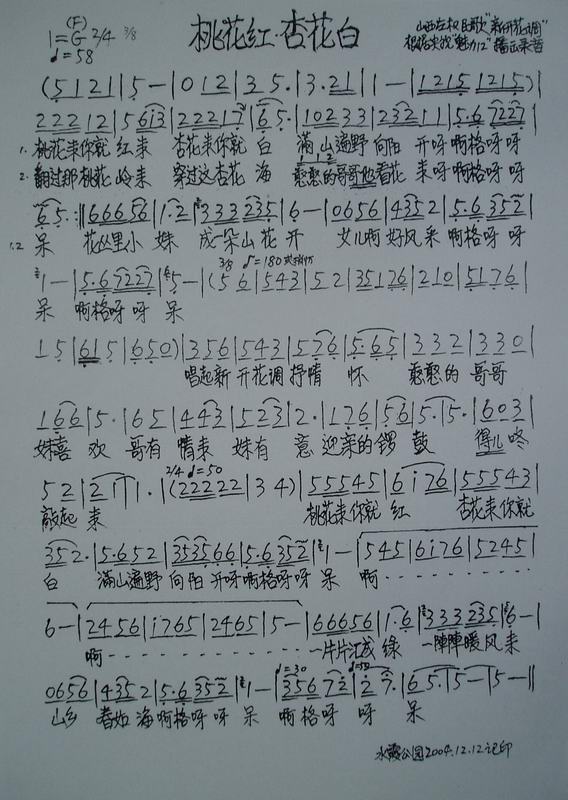 桃花红·杏花白
(F)
1=G 2/4 3/8
♩=58
山西左权民歌"新开花调"
(5 1 2 1 | 5 — | 0 1 2 | 3 5. | 3. 2 1 | 1 — | 1 2 1 5 1 2 1 5)
2 2 2 1 2 | 5 6 i 3 | 2 2 2 1 7 | 6 5. | 1 0 2 3 3 | 2 3 2 1 1 | 5. 6 7 2 2 7 |
1. 桃花来你就 红来 杏花来你就 白 满山遍野 向阳 开呀啊格呀呀
2. 翻过那桃花 岭来 穿过这杏花 海 憨憨的哥哥 看花 来呀啊格呀呀
6 5. :|| 6 6 6 5 6 | 1. 2 | 3 3 3 2 3 5 | 6 — | 0 6 5 6 | 4 3 5 2 | 5. 6 3 5 2 |
1.2 呆 花丛里小 妹 成一朵山花 开 女儿啊 好风采 啊格呀 呀
3/8 ♩=180
1 — | 5. 6 7 2 2 7 | 5 — | (5 6 | 5 4 3 | 5 2 | 3 5 1 7 6 | 2 1 0 | 5 1 7 6 |
呆 啊格呀呀 呆
1 5 | 6 1 5 | 6 5 0) | 3 5 6 | 5 4 3 | 5 7 6 | 5. 6 5 | 3 3 2 | 3 3 0 |
唱起新 开花调 抒情 怀 憨憨的 哥哥
1 6 6 | 5. | 6 5 | 4 4 3 | 5 2 3 | 2. | 1 7 6 | 5 6 | 5. | 5. | 6 0 3 |
妹喜 欢 哥有 情来 妹有 意 迎亲的 锣 鼓 得儿咚
2/4 ♩=50
5 2 | 2 1 | 1. | (2 2 2 2 2 | 3 4) | 5 5 5 4 5 | 6 i 7 6 | 5 5 5 4 3 |
敲起 来 桃花来你就 红 杏花来你就
3 5 2. | 5. 6 5 2 | 3 5 3 5 6 6 | 5. 6 3 5 2 | 1 — | 5 4 5 | 6 i 7 6 | 5 2 4 5 |
白 满山遍野 向阳 开呀啊格呀呀 呆 啊 - - - - - - - -
6 — | 2 4 5 6 | i 7 6 5 | 2 4 6 5 | 5 — | 6 6 6 5 6 | 1. 6 | 3 3 3 2 3 5 | 6 — |
啊 - - - - - - - - - - 一片片江成 绿 一阵阵暖风 来
♩=30 ♩=50
0 6 5 6 | 4 3 5 2 | 5. 6 3 5 2 | 1 — | 3 5 6 7 2 | 2 7. | 6 5. | 5 — | 5 — ||
山乡 春如 海啊格呀呀 呆 啊格呀 呀 呆
水霞公园2004.12.12记印